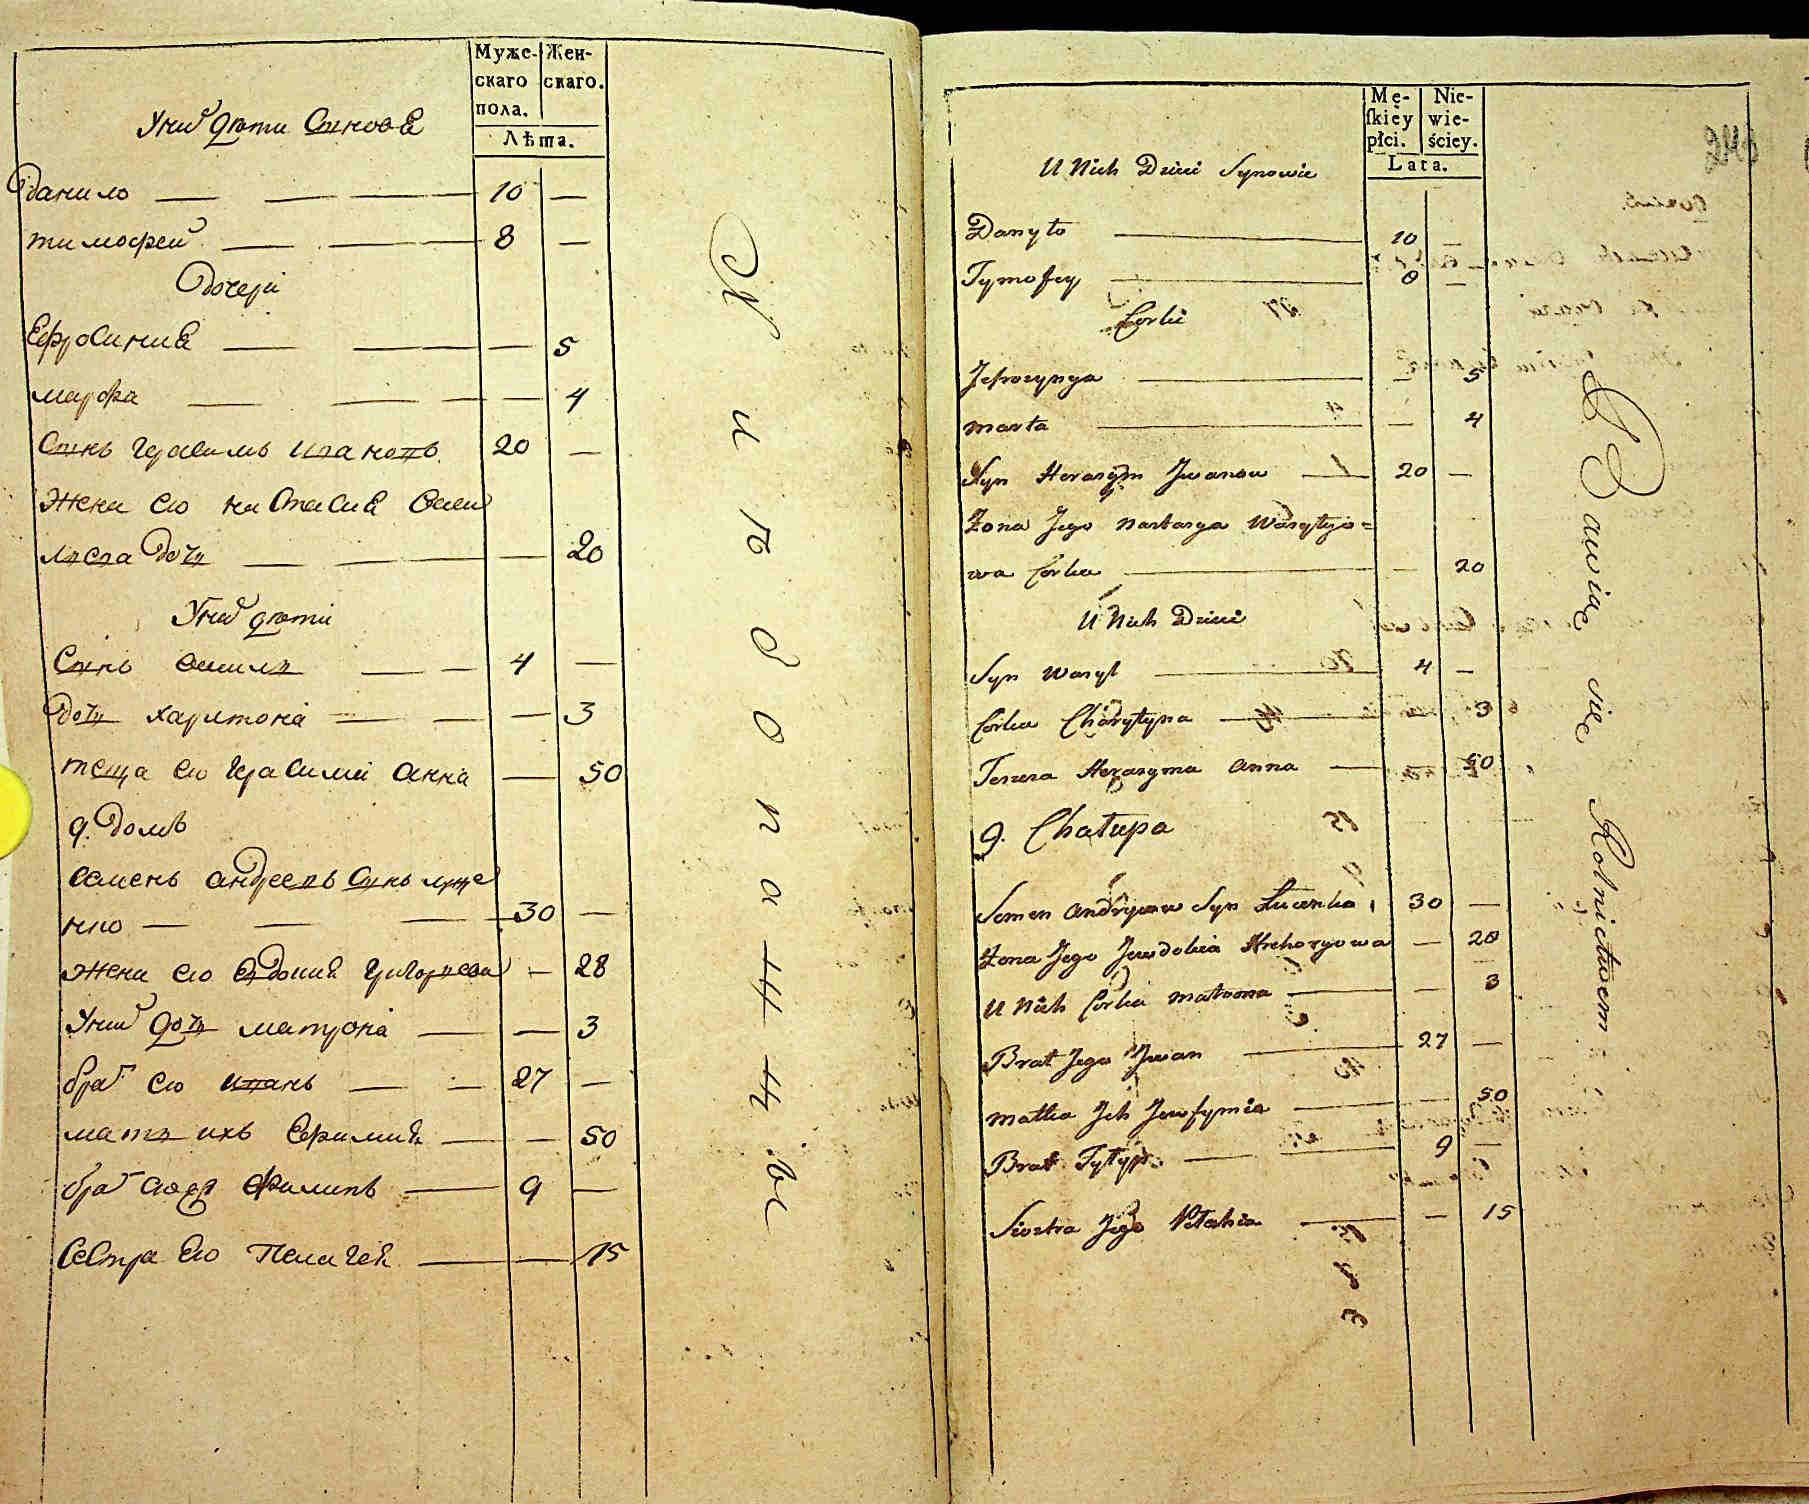 Муже-
скаго
пола.
Жен-
скаго.
Лѣта.
У нихъ дѣти Синовя
Данило — — 10 —
тимофей — — 8 —
Дочери
Ефросиния — — — 5
марфа — — — 4
Синъ Герасимъ ивановъ 20 —
Жена его настасия васи
льева дочь — — 20
У нихъ дѣти
Синъ василь — — 4 —
дочь харитона — — — 3
теща его Герасима анна — 50
9. Домъ
семенъ андреевъ Синъ луце
нко — — — 30 —
жена его евдокия григорьева — 28
У нихъ дочь матрона — — 3
братъ его иванъ — — 27 —
мать ихъ Ефимия — — 50
братъ филипъ — 9 —
Сестра Его Пелагея — — 15
Mę-
ſkiey
płci.
Nie-
wie-
ściey.
Lata.
U Nich Dzieci Synowie
Danyło — 10 —
Tymofey — 8 —
Corki
Jefrosynya — — 5
marta — — 4
Syn Herasym Jwanow — 20 —
Żona Jego nastasya Wasylyjo=
wa Corka — — 20
U Nich Dzieci
Syn Wasyl — 4 —
Corka Charytyna — 3
Teszcza Herasyma anna — 50
9. Chałupa
Semen Andryjew Syn Łucenko, 30 —
Żona Jego Jewdokia Hrehorgowa — 28
U Nich Corka matrona — — 3
Brat Jego Jwan — 27 —
matka Jch Jewfymia — — 50
Brat — — 9 —
Siostra Jego — — 15
Bawiąc się Rolnictwem